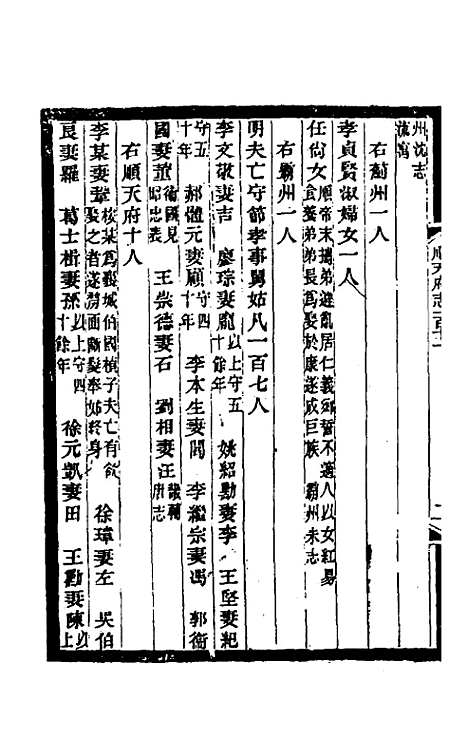 州沈志
右薊州一人
孝貞賢淑婦女一人
任尚女順帝末攜弟避亂居仁義鄉誓不適人以女紅易食養弟弟長爲娶於康遂成巨族 霸州朱志
右霸州一人
明夫亡守節孝事舅姑凡一百七人
李文敬妻吉 廖琮妻龐以上守五十餘年 姚紹勳妻李 王堅妻紀
守五十年 郝體元妻顧守四十年 李本生妻閻 李繼宗妻馮 郭衞
國妻董衞國見昭忠表 王崇德妻石 劉相妻汪畿輔唐志
右順天府十人
李某妻韋 按某爲襄城伯國楨子夫亡有欲娶之者遂剺面斷髮奉姑終身 徐瑋妻左 吳伯
良妻羅 葛士楷妻孫以上守四十餘年 徐元凱妻田 王勳妻陳以上
順天府志一百十二